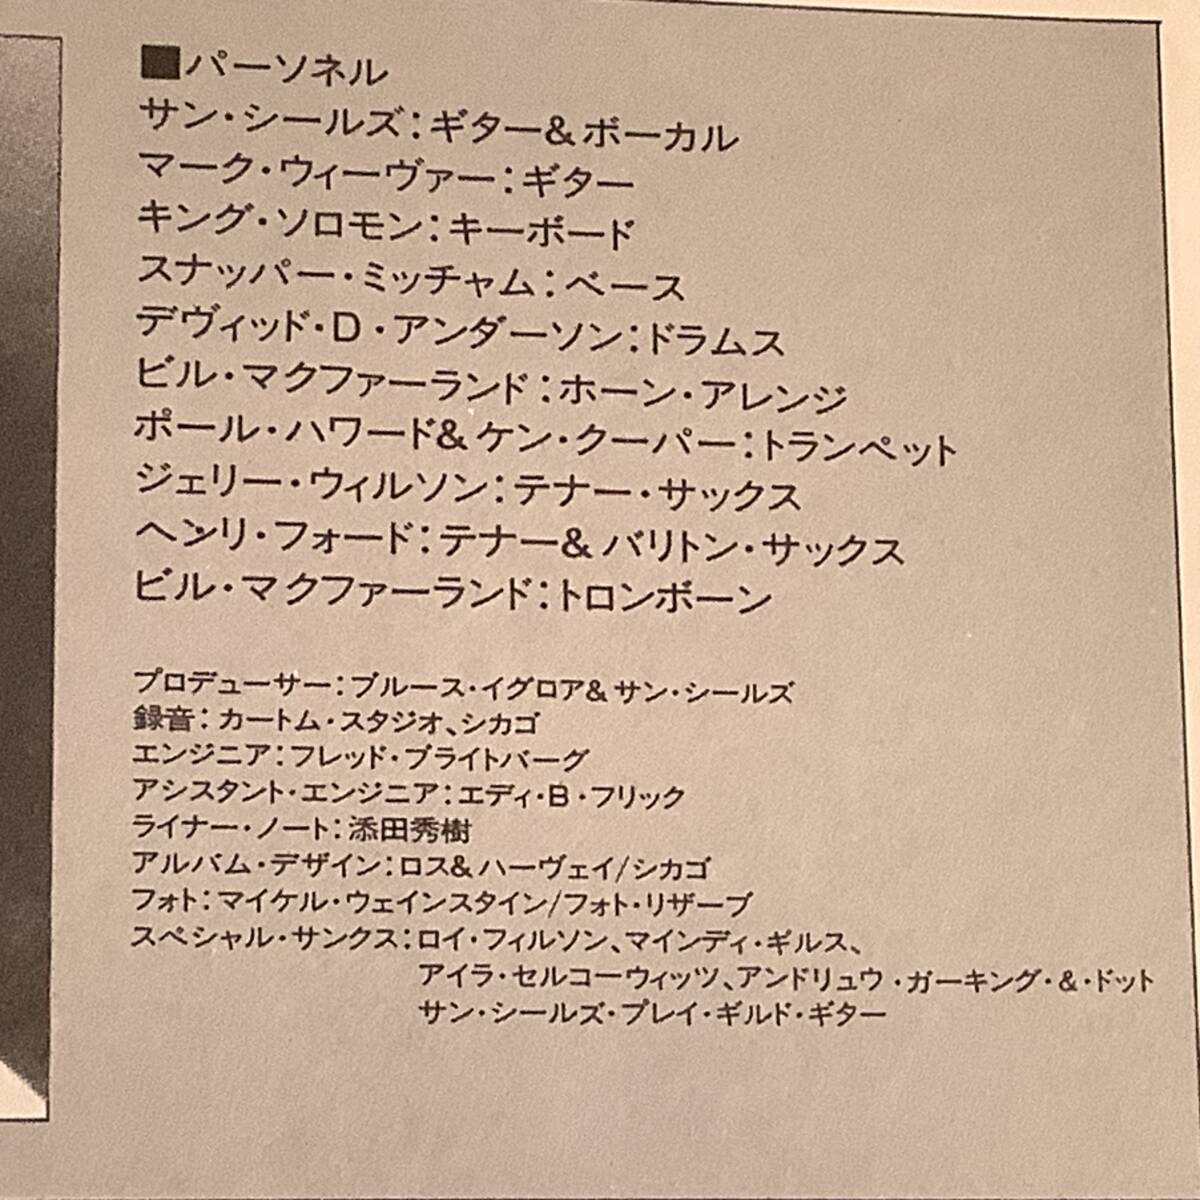 ■パーソネル
サン・シールズ:ギター&ボーカル
マーク・ウィーヴァー:ギター
キング・ソロモン:キーボード
スナッパー・ミッチャム:ベース
デヴィッド・D・アンダーソン:ドラムス
ビル・マクファーランド:ホーン・アレンジ
ポール・ハワード&ケン・クーパー:トランペット
ジェリー・ウィルソン:テナー・サックス
ヘンリ・フォード:テナー&バリトン・サックス
ビル・マクファーランド:トロンボーン
プロデューサー:ブルース・イグロア&サン・シールズ
録音:カートム・スタジオ、シカゴ
エンジニア:フレッド・ブライトバーグ
アシスタント・エンジニア:エディ・B・フリック
ライナー・ノート:添田秀樹
アルバム・デザイン:ロス&ハーヴェイ/シカゴ
フォト:マイケル・ウェインスタイン/フォト・リザーブ
スペシャル・サンクス:ロイ・フィルソン、マインディ・ギルス、
アイラ・セルコーウィッツ、アンドリュウ・ガーキング・&・ドット
サン・シールズ・プレイ・ギルド・ギター